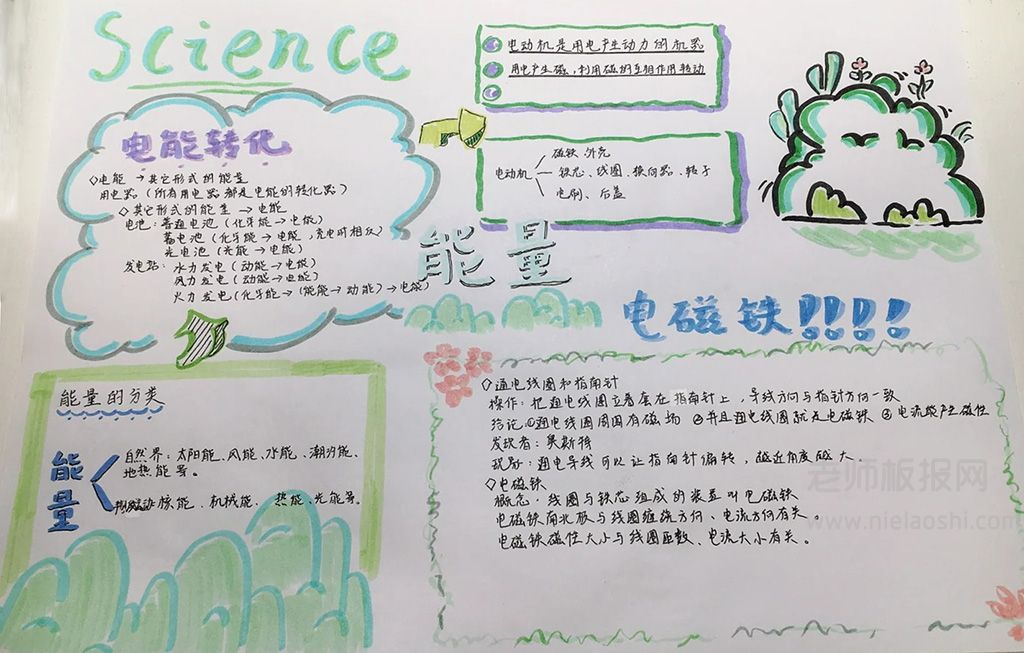 Science
电能转化
◇电能→其它形式的能量
用电器(所有用电器都是电能的转化器)
◇其它形式的能量→电能
电池:普通电池(化学能→电能)
蓄电池(化学能→电能,充电时相反)
光电池(光能→电能)
发电站:水力发电(动能→电能)
风力发电(动能→电能)
火力发电(化学能→(热能→动能)→电能)
电动机是用电产生动力的机器
用电产生磁,利用磁的互相作用转动
电动机
磁铁 外壳
铁芯、线圈、换向器、转子
电刷、后盖
能量
电磁铁!!!!
能量的分类
能量
自然界:太阳能、风能、水能、潮汐能、
地热能等。
能、机械能、热能、光能等。
◇通电线圈和指南针
操作:把通电线圈立着套在指南针上,导线方向与指针方向一致
结论:①通电线圈周围有磁场 ②并且通电线圈就是电磁铁 ③电流能产生磁性
发现者:奥斯特
现象:通电导线可以让指南针偏转,越近角度越大。
◇电磁铁
概念:线圈与铁芯组成的装置叫电磁铁
电磁铁南北极与线圈缠绕方向、电流方向有关。
电磁铁磁性大小与线圈匝数、电流大小有关。
老师板报网
www.nielaoshi.com